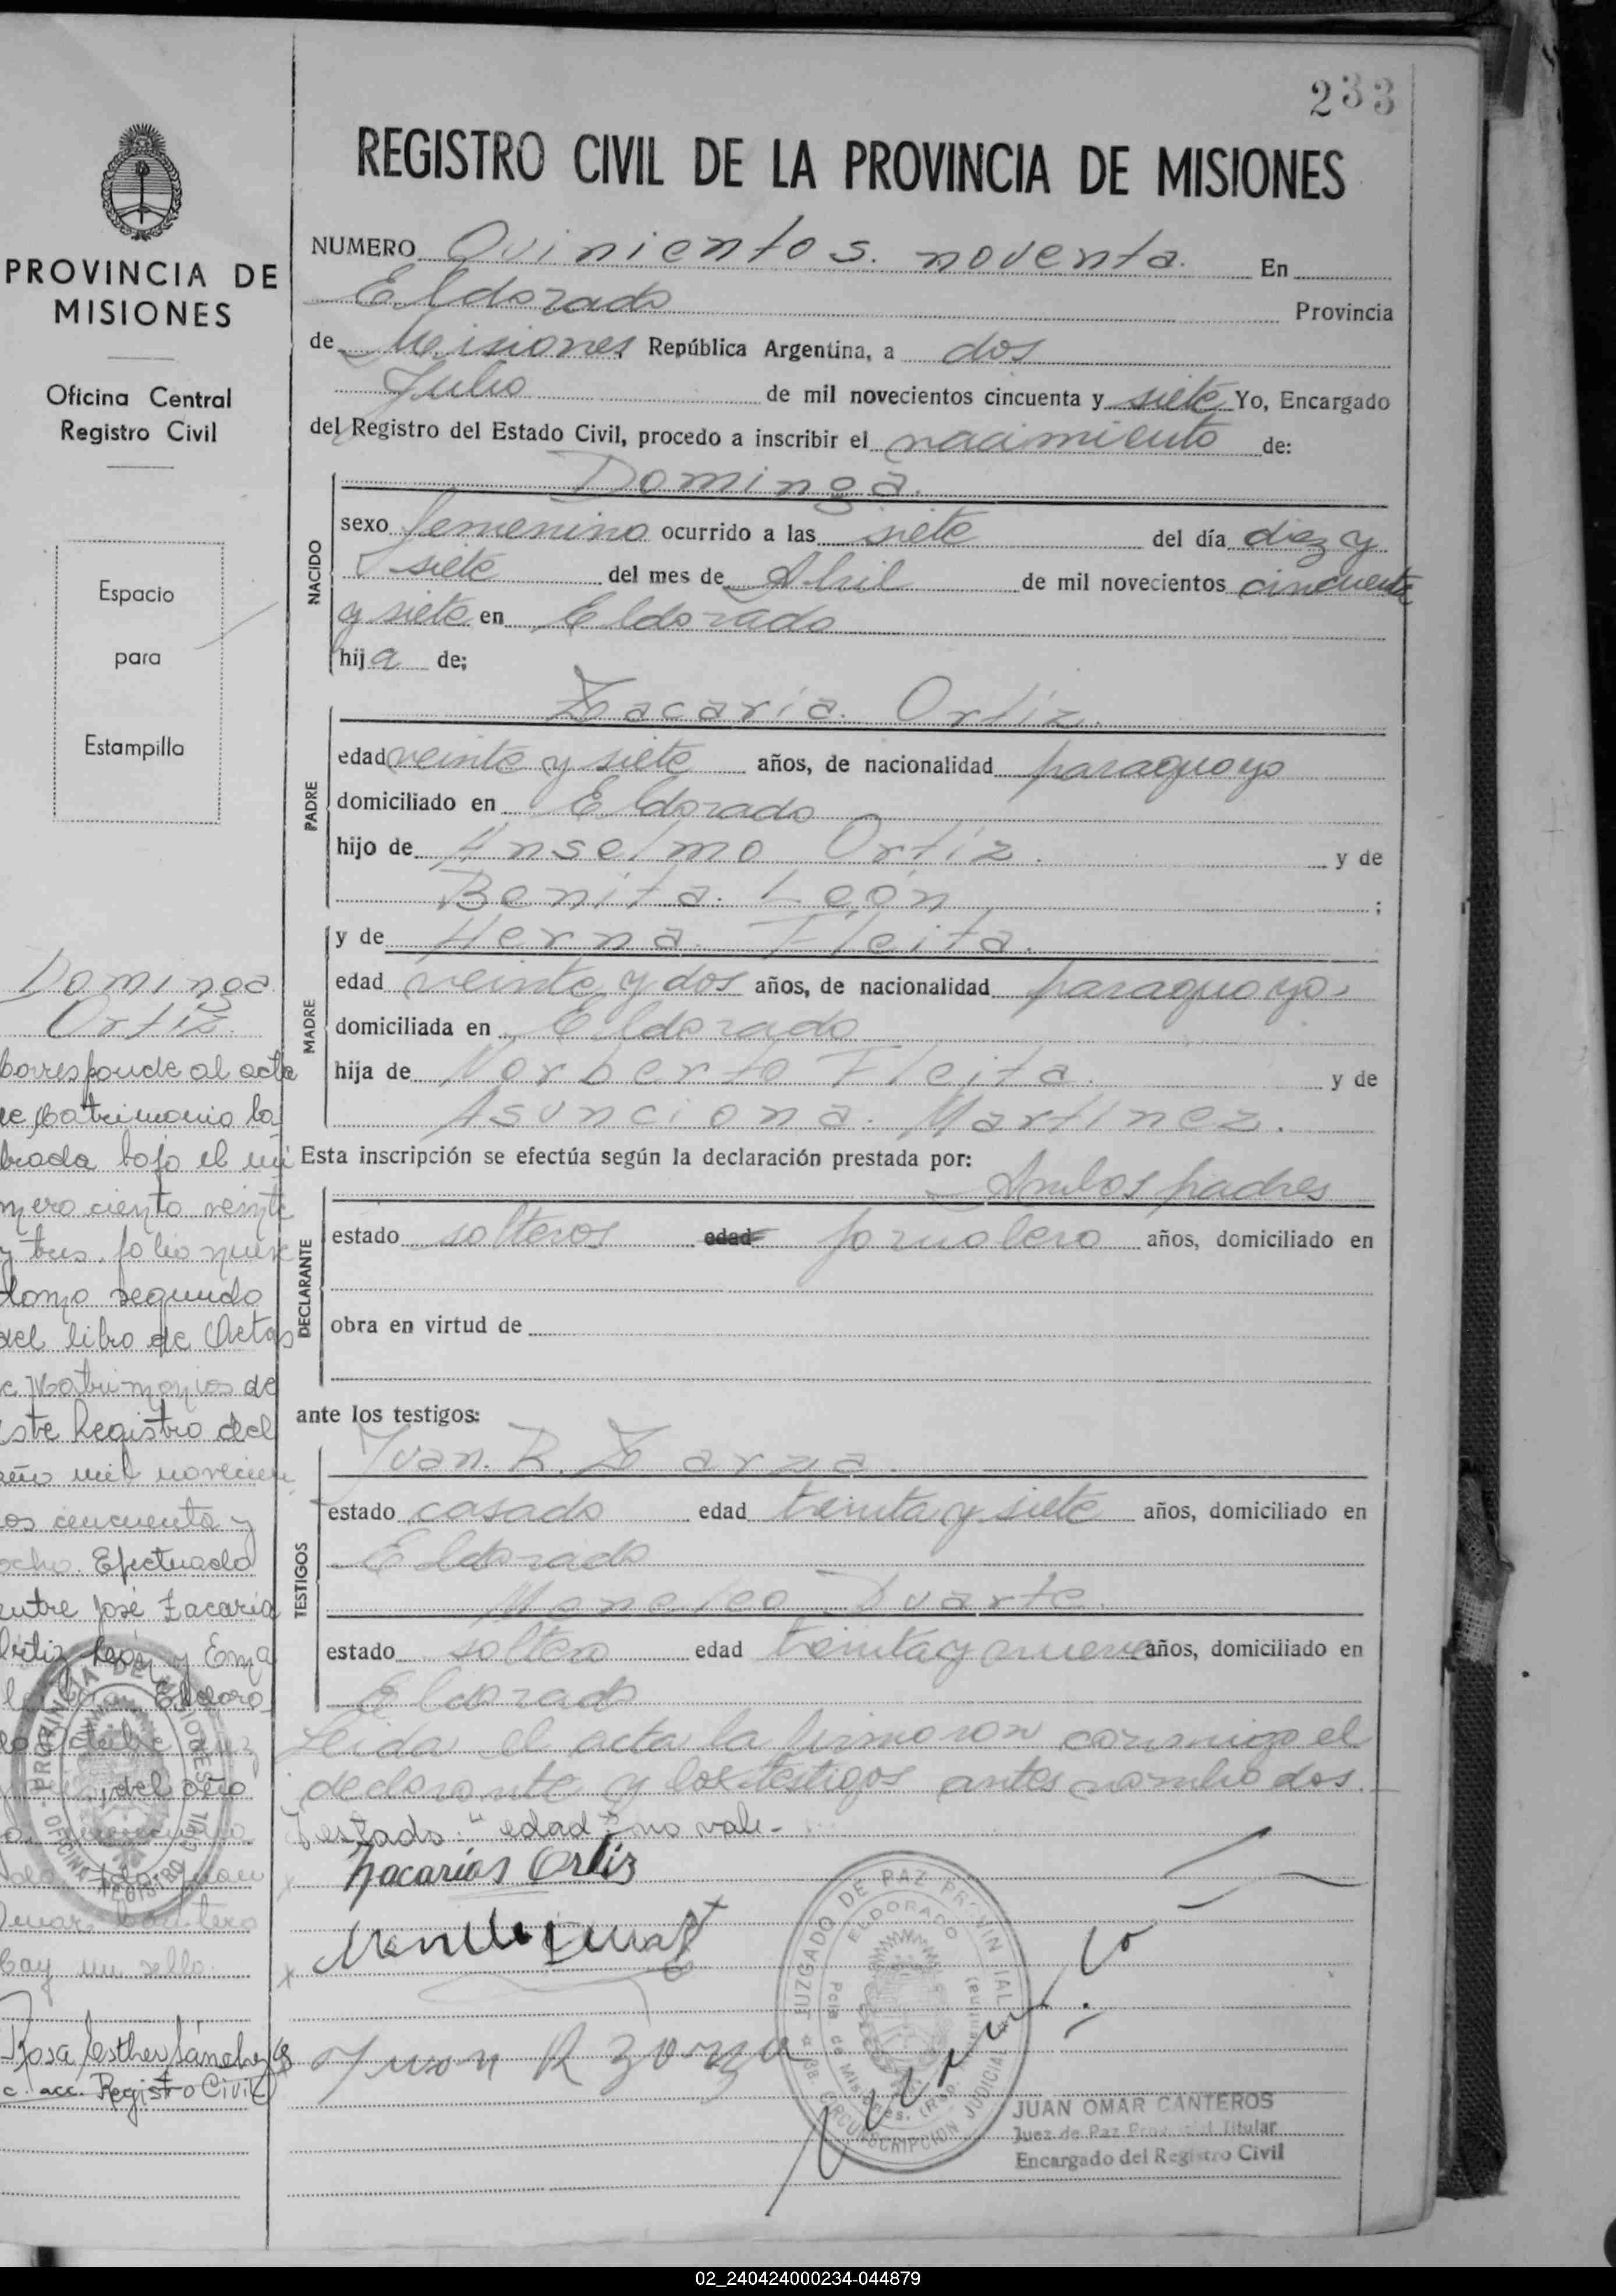 233
REGISTRO CIVIL DE LA PROVINCIA DE MISIONES
NUMERO Quinientos. noventa. En
Eldorado Provincia
de Misiones República Argentina, a dos
Julio de mil novecientos cincuenta y siete Yo, Encargado
del Registro del Estado Civil, procedo a inscribir el nacimiento de:
NACIDO
Dominga.
sexo femenino ocurrido a las siete del día diez y
siete del mes de Abril de mil novecientos cincuenta
y siete en Eldorado
hija de;
PADRE
Zacaria. Ortiz.
edad veinte y siete años, de nacionalidad paraguayo
domiciliado en Eldorado
hijo de Anselmo Ortiz. y de
Benita. León ;
MADRE
y de Herna. Fleita.
edad veinte y dos años, de nacionalidad paraguaya.
domiciliada en Eldorado
hija de Norberto Fleita. y de
Asunciona. Martinez.
Esta inscripción se efectúa según la declaración prestada por:
DECLARANTE
Ambos padres
estado solteros edad jornalero años, domiciliado en
obra en virtud de
ante los testigos:
TESTIGOS
Juan. R. Zarza.
estado casado edad treinta y siete años, domiciliado en
Eldorado
Meneleo Duarte.
estado soltero edad treinta y nueve años, domiciliado en
Eldorado
Leida el acta la firmaron conmigo el
declarante y los testigos antes nombrados.
Testado: "edad" no vale-
Zacarias Ortiz
Juan R Zarza
JUZGADO DE PAZ PROVINCIAL
ELDORADO
Pcia de Misiones. (Rep.
CIRCUNSCRIPCION JUDICIAL
JUAN OMAR CANTEROS
Juez de Paz Provincial Titular
Encargado del Registro Civil
PROVINCIA DE
MISIONES
Oficina Central
Registro Civil
Espacio
para
Estampilla
Dominga
Ortiz.
Corresponde al acta
de Matrimonio la
brada bajo el nú
mero ciento veinte
y tres, folio
tomo segundo
del libro de Actas
de Matrimonios de
este Registro del
año mil novecien
os cincuenta y
ocho. Efectuado
entre José Zacaria
Ortiz León y Ema
Eldora
del año
Juan
Omar Cantero
Hay un sello.
PROVINCIA DE MISIONES
OFICINA REGISTRO CIVIL
Rosa Esther Sánchez
c. acc. Registro Civil
02_240424000234-044879